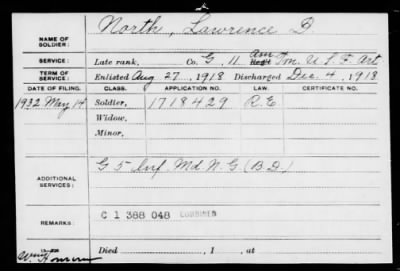 NAME OF SOLDIER: North, Lawrence D.
SERVICE: Late rank, Co. G, 11 Am Tn. U S F. Art
TERM OF SERVICE: Enlisted Aug 27, 1918 Discharged Dec. 4, 1918
DATE OF FILING. CLASS. APPLICATION NO. LAW. CERTIFICATE NO.
1932 May 14 Soldier, 1718429 R.E
Widow,
Minor,
ADDITIONAL SERVICES: G 5 Inf. Md N. G (B.D.)
REMARKS: C 1 388 048 COMBINED
Died , 1 , at